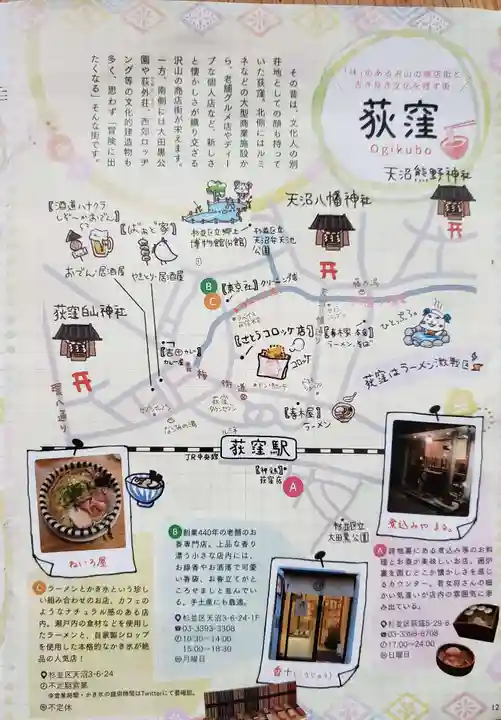 「味」のある沢山の商店街と
古き良き文化を残す街
荻窪
Ogikubo
その昔は、文化人の別
荘地としての顔も持って
いた荻窪。北側にはルミ
ネなどの大型商業施設か
ら、老舗グルメ店やディー
プな個人店など、新しさ
と懐かしさが織り交ざる
沢山の商店街が栄えます。
一方、南側には大田黒公
園や荻外荘、西郊ロッヂ
ング等の文化的建造物も
多く、思わず「冒険に出
たくなる」そんな街です。
天沼熊野神社
天沼八幡神社
杉並区立郷土
博物館(分館)
杉並区立
天沼弁天池
公園
おでん・居酒屋
やきとり・居酒屋
荻窪白山神社
B
C
『東京社』クリーニング店
『さとうコロッケ店』
コロッケ
『春木家 本店』
ラーメン、そば
ひとっぷろ
荻窪はラーメン激戦区
『吉田カレー』
カレー屋
環八通り
青梅街道
荻窪
タウンセブン
なごみの湯
ルミネ
『春木屋』
ラーメン
JR中央線
荻窪駅
荻窪店
A
杉並区立
大田黒公園
ねいろ屋
煮込みや まる。
B 創業440年の老舗のお
香専門店。上品な香り
漂う小さな店内には、
お線香やお洒落で可愛
い香袋、お香立てがと
ころせましと並んでい
る。手土産にも最適。
杉並区天沼3-6-24-1F
03-3393-3308
10:30〜14:00
15:00〜18:30
月曜日
香十(こうじゅう)
C ラーメンとかき氷という珍し
い組み合わせのお店。カフェの
ようなナチュラル感のある店
内。瀬戸内の食材などを使用し
たラーメンと、自家製シロップ
を使用した本格的なかき氷が絶
品の人気店！
杉並区天沼3-6-24
不定期営業
※営業時間・かき氷の提供時間はTwitterにて要確認。
不定休
A 路地裏にある煮込み等のお料
理とお酒が美味しいお店。囲炉
裏を囲むどこか懐かしさを感じ
るカウンター。若女将さんの細
かい気遣いが店内の雰囲気に滲
み出ている。
杉並区荻窪5-29-6
03-3398-8708
17:00〜24:00
日曜日
12